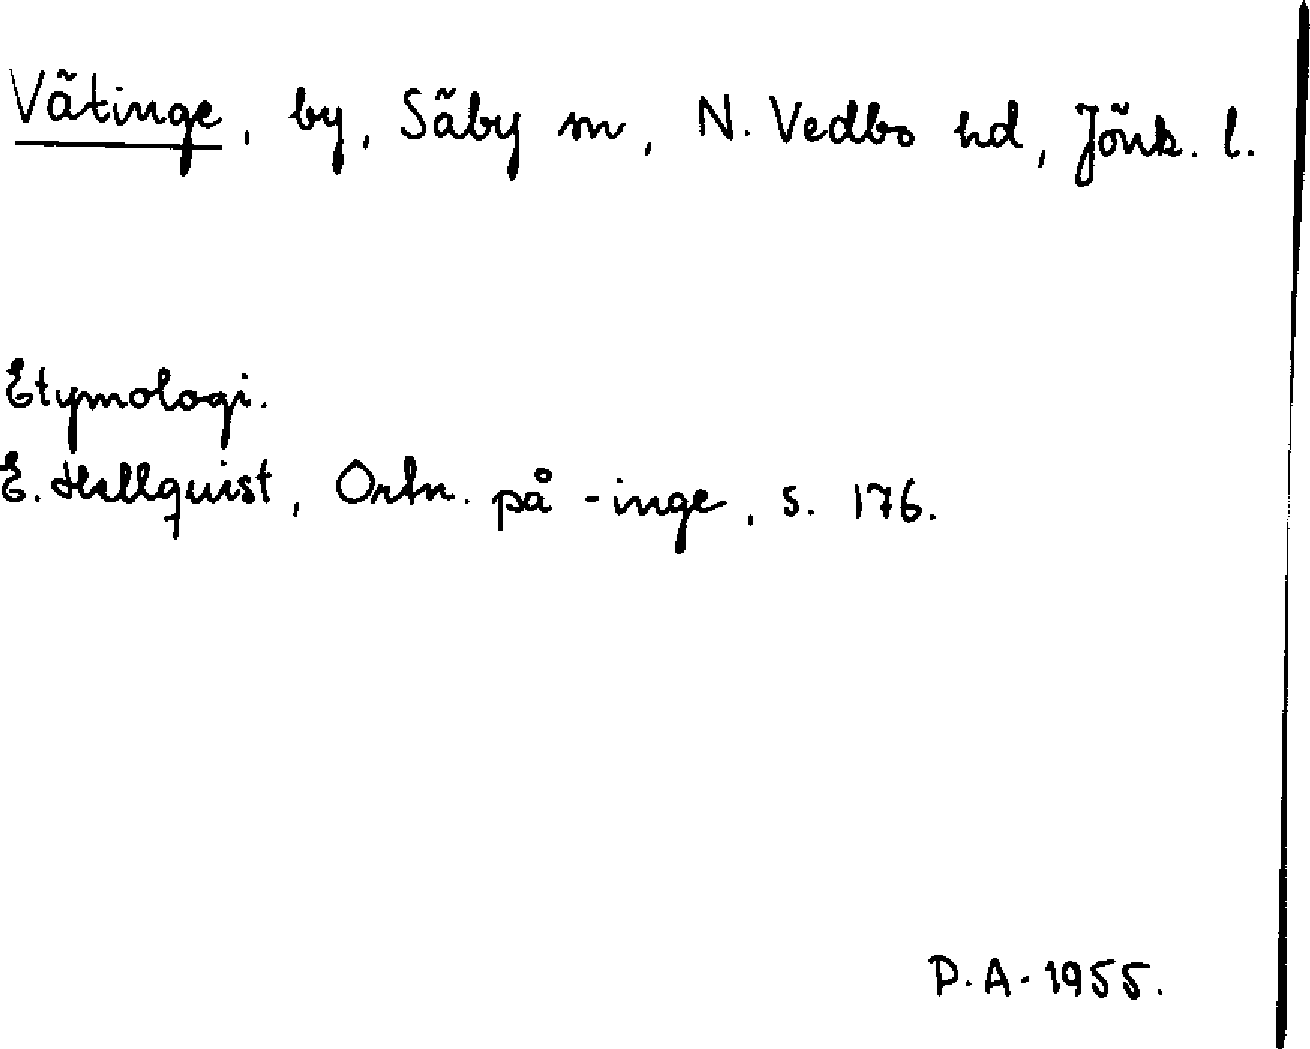 Vätinge, by, Säby sn, N. Vedbo hd, Jönk. l.
Etymologi.
E. Hellquist, Ortn. på -inge, s. 176.
P.A. 1955.